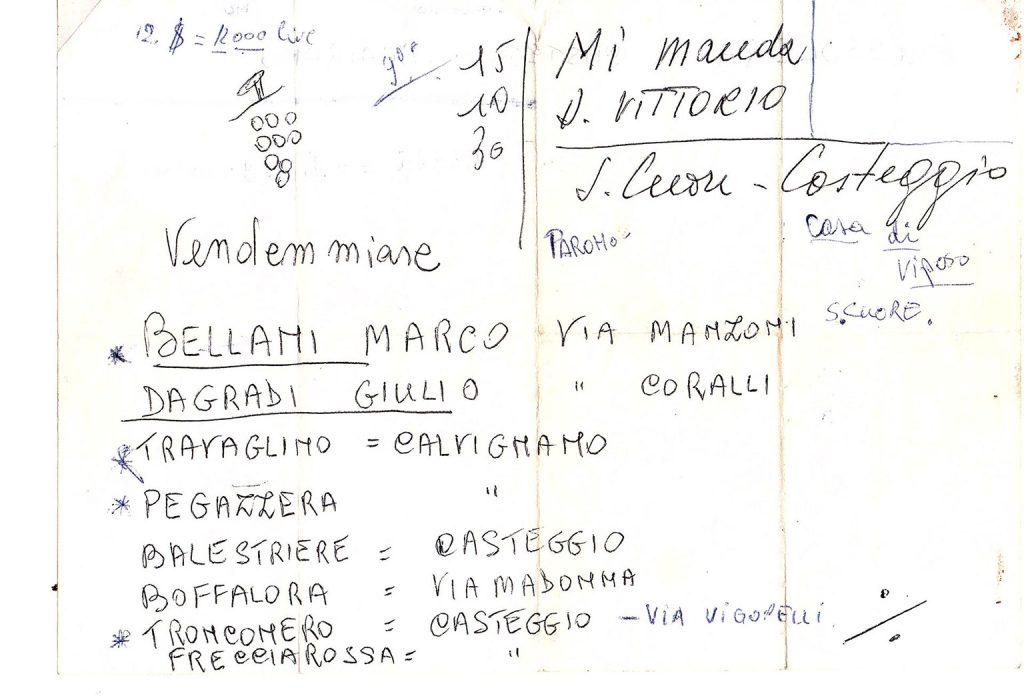 12. $ = 12000 lire
15
10
30
Mi manda
D. VITTORIO
S. Cuore - Casteggio
Casa di
riposo
S.CUORE.
Vendemmiare
* BELLAMI MARCO VIA MANZONI
DAGRADI GIULIO " CORALLI
* TRAVAGLINO = CALVIGNANO
* PEGAZZERA "
BALESTRIERE = CASTEGGIO
BOFFALORA = VIA MADONNA
* TRONCONERO = CASTEGGIO - VIA VIGORELLI
FRECCIAROSSA = "